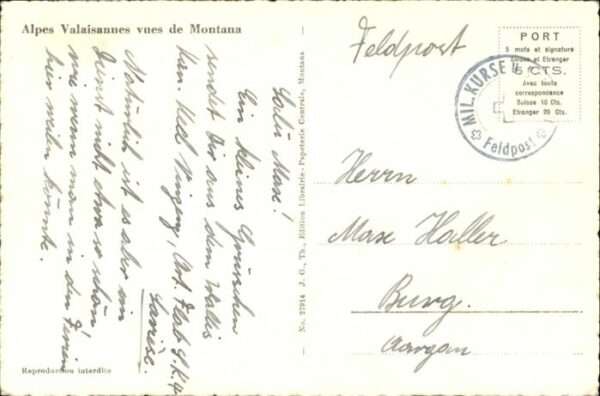 Alpes Valaisannes vues de Montana
Salü Max!
Ein kleines Grüsschen
sendet Dir aus dem Wallis
Kan. Uel
Art. Flab
Natürlich ist es aber im
Dienst nicht etwa so schön!
wie wenn man in den Ferien
hier weilen könnte.
Reproduction interdite
No. 27914 J. G., Th., Edition Librairie-Papeterie Centrale, Montana
Feldpost
PORT
5 mots et signature
Suisse et Etranger
5 CTS.
Avec toute
correspondance
Suisse 10 Cts.
Etranger 20 Cts.
MIL. KURSE
Feldpost
Herrn
Max Haller
Burg.
Aargau